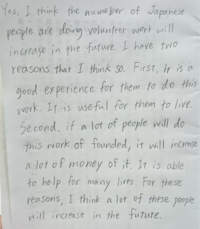 Yes, I think the number of Japanese
people are doing volunteer work will
increase in the future. I have two
reasons that I think so. First, it is a
good experience for them to do this
work. It is useful for them to live.
Second, if a lot of people will do
this work of founded, it will increase
a lot of money of it. It is able
to help for many lives. For these
reasons, I think a lot of these people
will increase in the future.